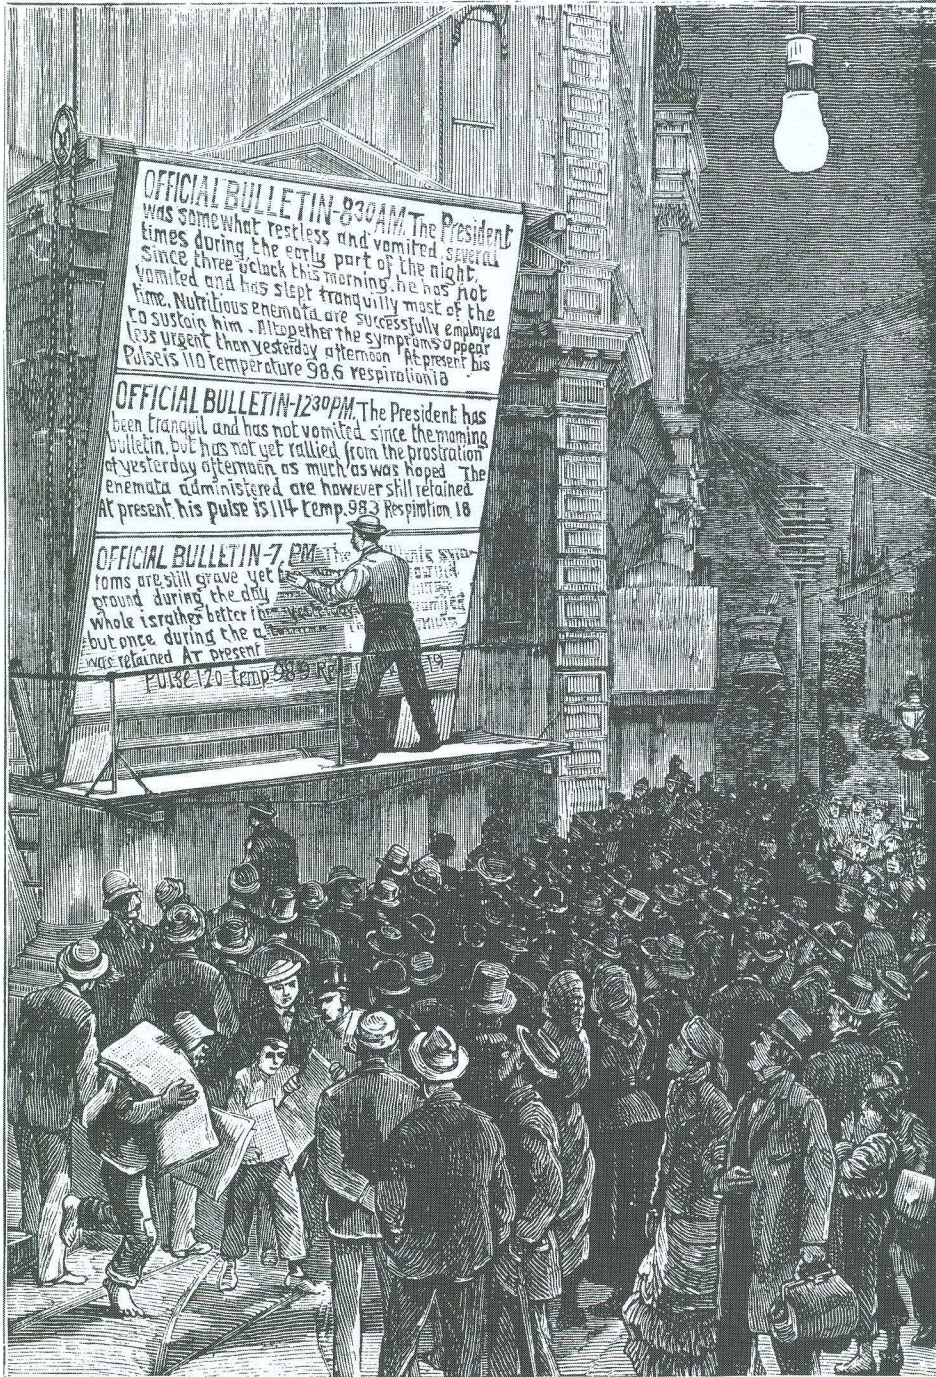 OFFICIAL BULLETIN-8 30 AM. The President
was somewhat restless and vomited several
times during the early part of the night,
Since three oclock this morning, he has not
vomited and has slept tranquilly most of the
time. Nutritious enemata are successfully employed
to sustain him. Altogether the symptoms appear
less urgent than yesterday afternoon At present his
Pulse is 110 temperature 98.6 respiration 18
OFFICIAL BULLETIN-12 30 PM. The President has
been tranquil and has not vomited since the morning
bulletin, but has not yet rallied from the prostration
of yesterday afternoon as much as was hoped The
enemata administered are however still retained
At present his pulse is 114 temp. 98 3 Respiration 18
OFFICIAL BULLETIN-7, PM The
toms are still grave yet
ground during the day
whole is rather better
but once during the a
was retained At present
Pulse 120 temp 98 9 Re 19